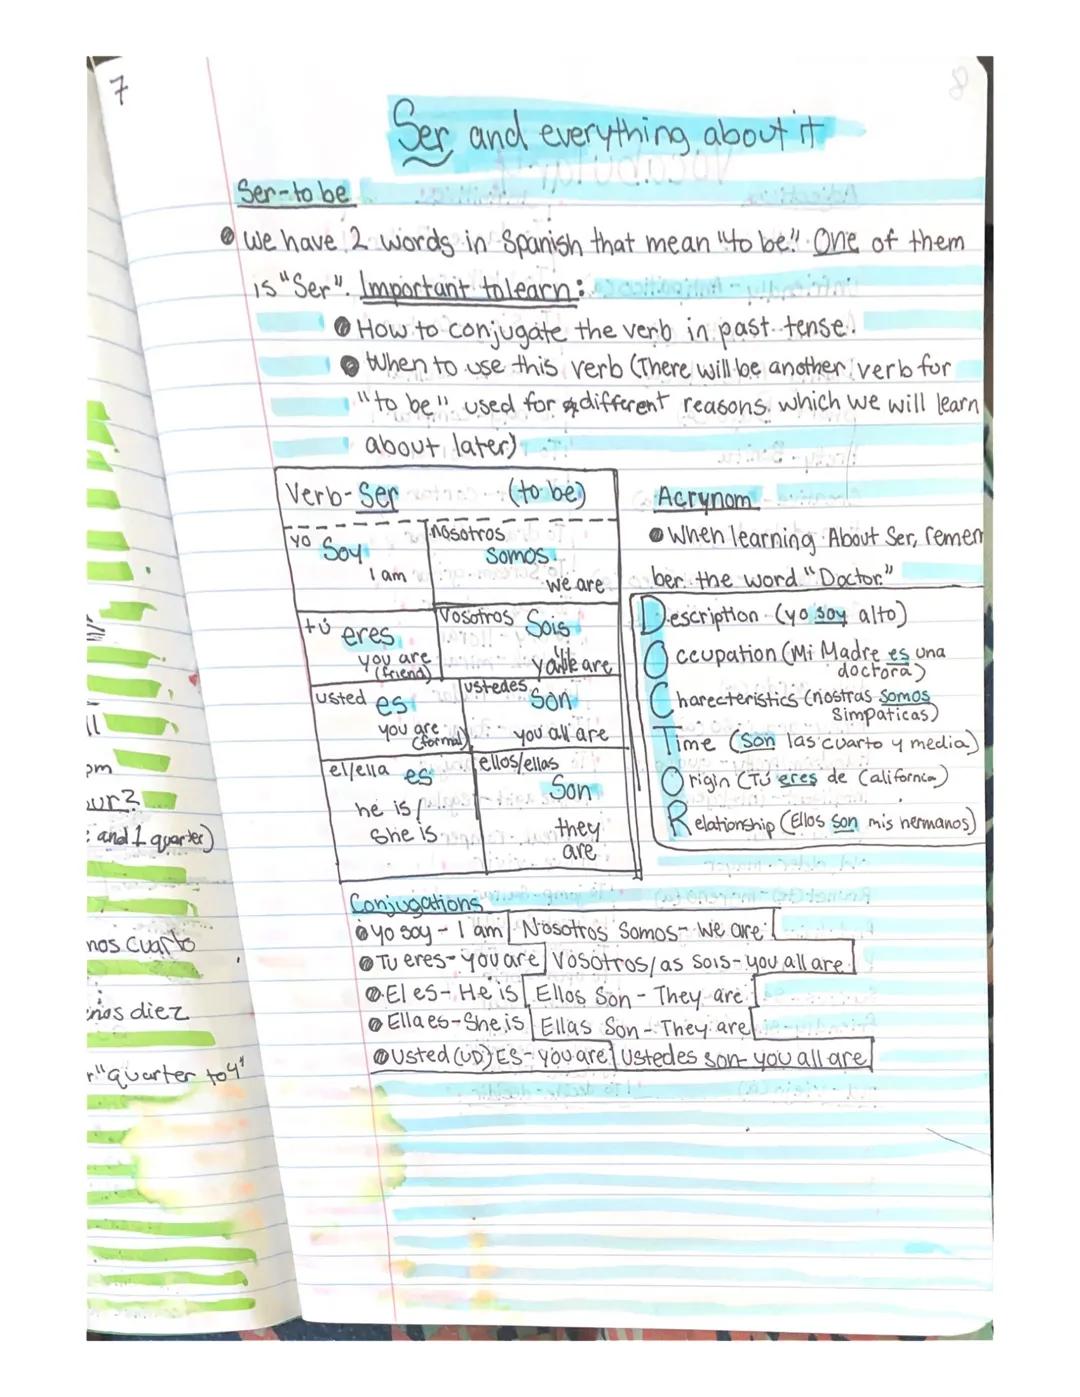 7
8
Ser and everything about it
Ser-to be
we have 2 words in Spanish that mean "to be". One of them
is "Ser". Important to learn:
How to conjugate the verb in past tense.
When to use this verb (There will be another verb for
"to be" used for different reasons. which we will learn
about later)
Verb-Ser (to be)
yo Soy
I am
nosotros
somos
we are
tú eres
you are
(friend)
Vosotros Sois
are
usted es
you are
(formal)
ustedes
Son
you all are
el/ella es
he is/
She is
ellos/ellas
Son
they
are
Acrynom
When learning About Ser, remem
ber the word "Doctor."
Description (yo soy alto)
Occupation (Mi Madre es una
doctora)
Charecteristics (nostras somos
Simpaticas)
Time (Son las cuarto y media)
Origin (Tú eres de California)
Relationship (Ellos son mis hermanos)
Conjugations
yo soy - I am Nosotros Somos - we are
Tu eres - you are Vosotros/as Sois - you all are
El es - He is Ellos Son - They are
Ella es - She is Ellas Son - They are
Usted (UD) ES - you are Ustedes son - you all are
om
ur?
and 1 quarter)
nos cuarto
enos diez
r "quarter to 4"